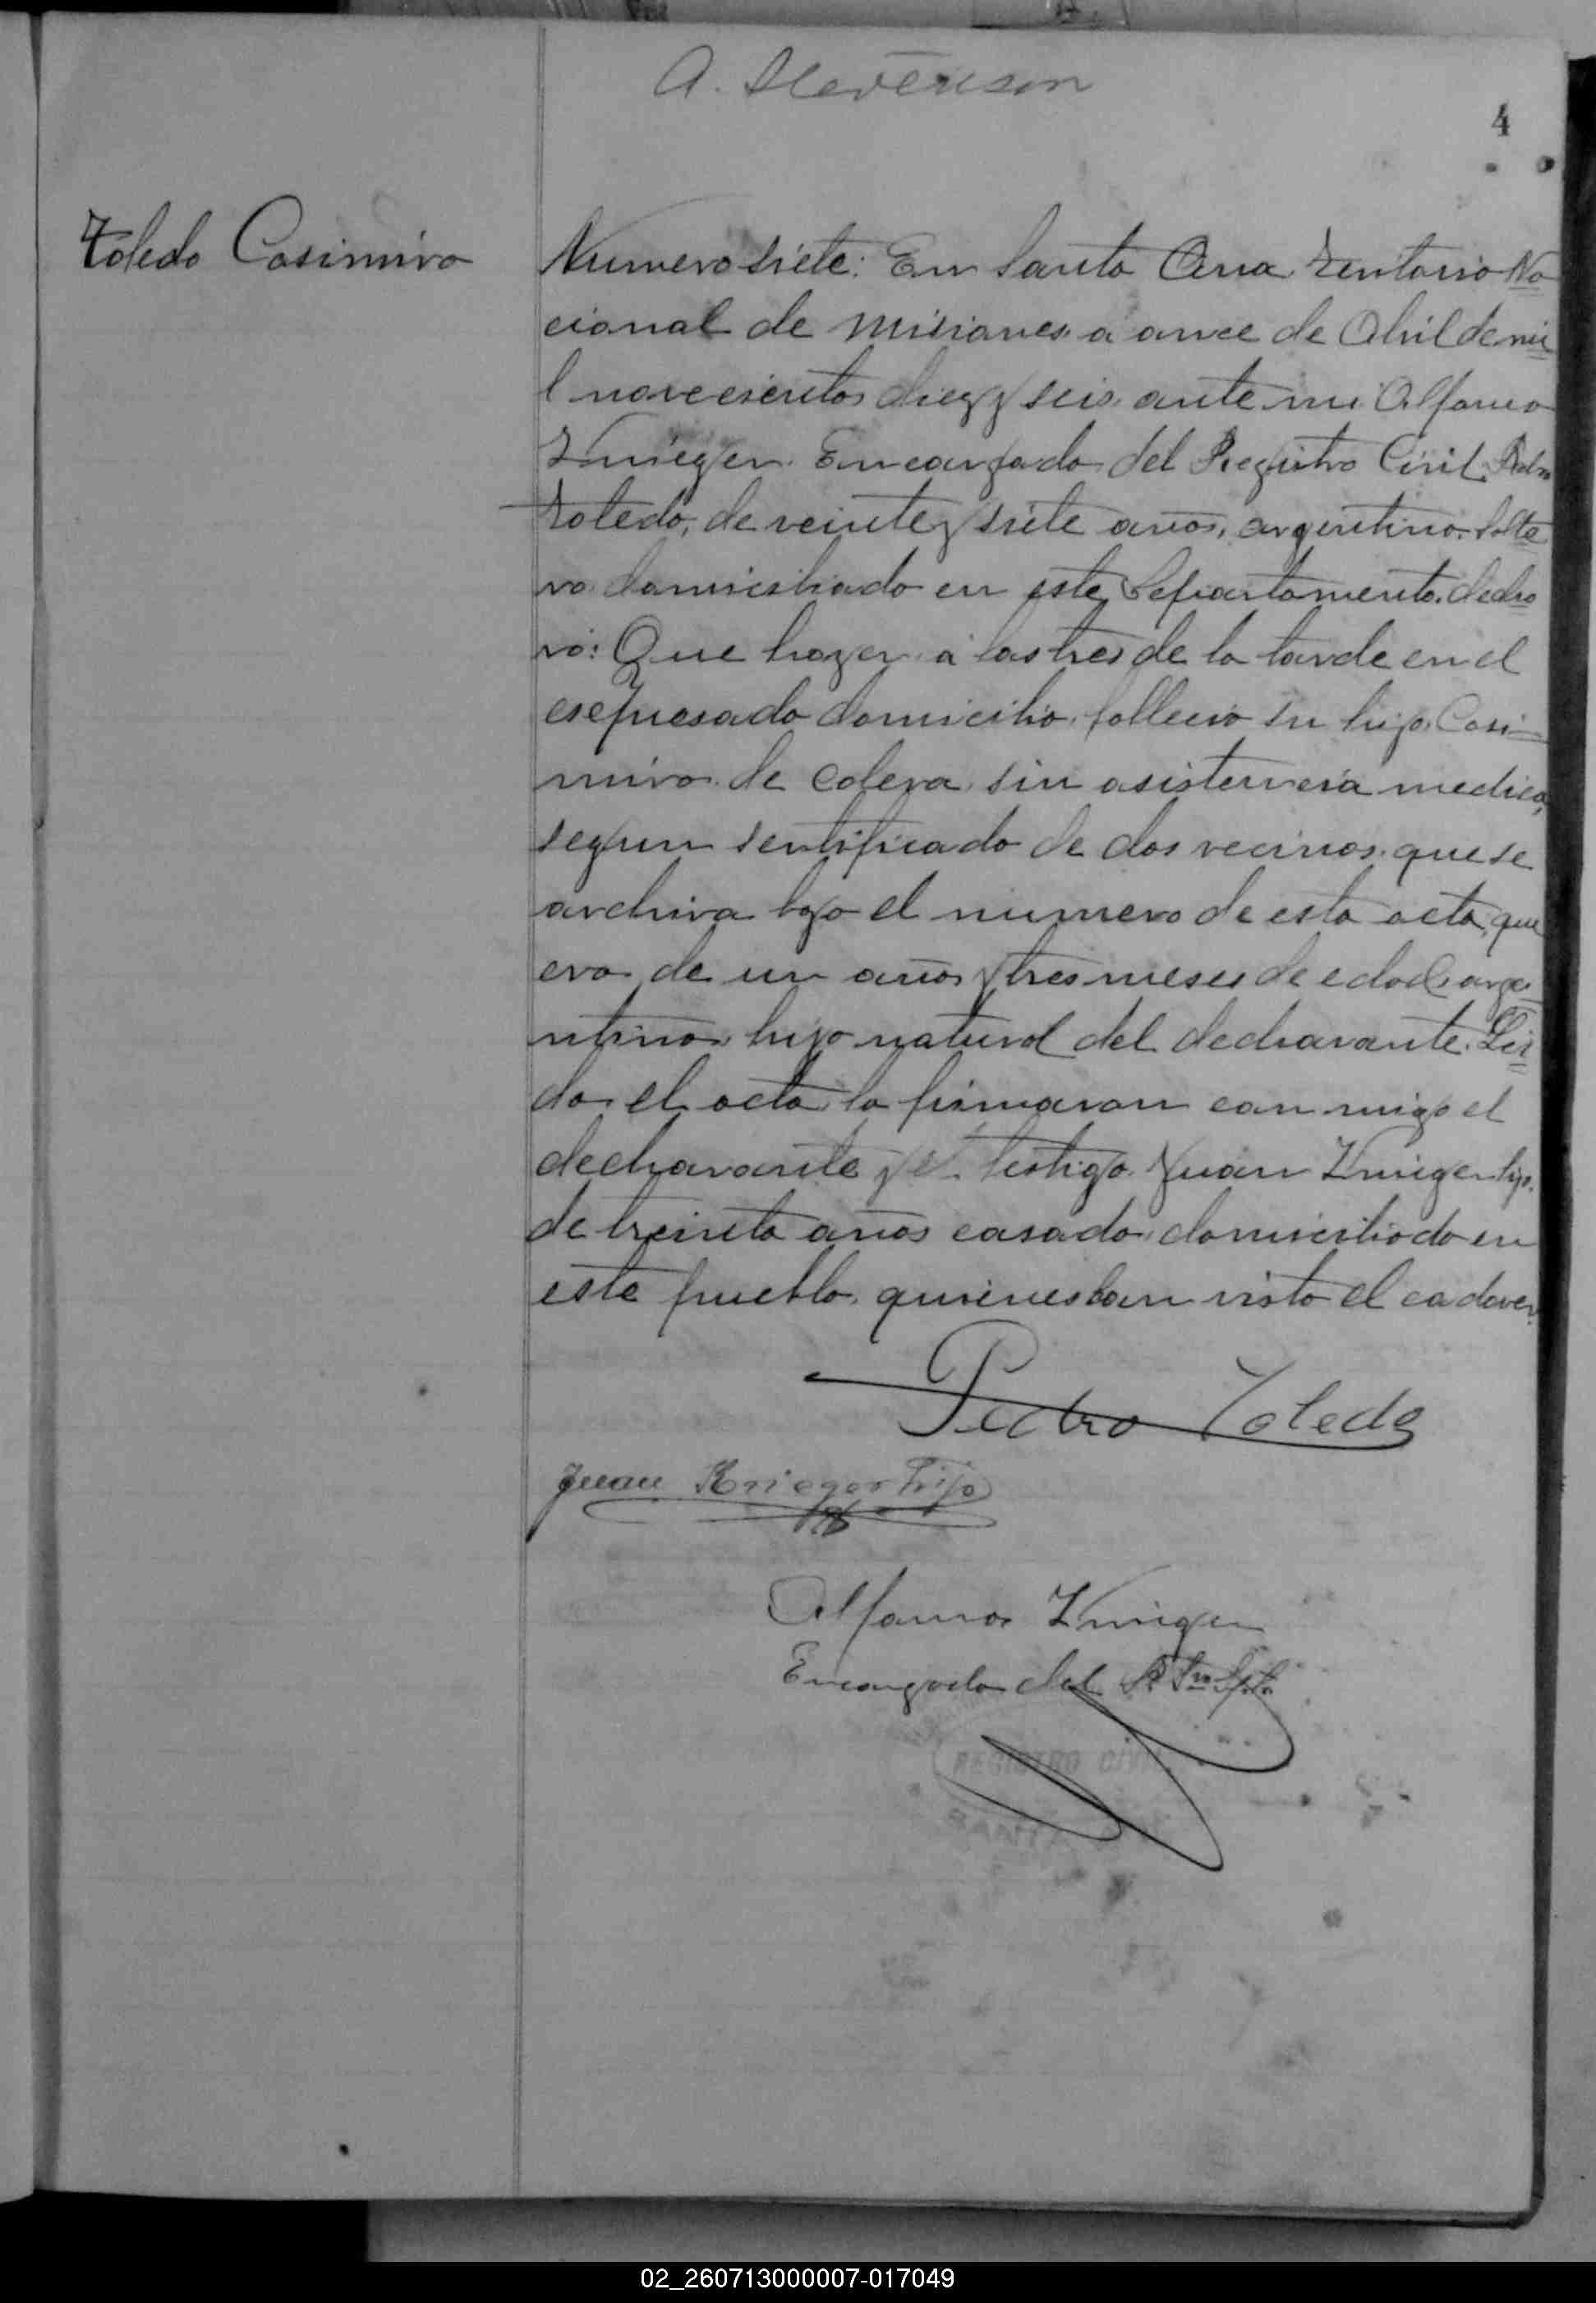 A. Stevenson
4
Toledo Casimiro
Numero siete: En Santa Ana Territorio Na
cional de Misiones a once de Abril de mi
l novecientos diez y seis, ante mi Alfonso
Krieger Encargado del Registro Civil Pedro
Toledo, de veinte y siete años, argentino, solte
ro domiciliado en este Departamento, declaro
ró: Que hoy a las tres de la tarde en el
esepresado domicilio, fallecio su hijo, Casi
miro de colera sin asistencia medica,
segun sertificado de dos vecinos, que se
archiva bajo el numero de esta acta, que
era de un años y tres meses de edad, arge
ntino, hijo natural del declarante. Lei
da el acta la firmaron conmigo el
declarante y el testigo Juan Krieger hijo.
de treinta años casado, domiciliado en
este pueblo, quienes han visto el cadaver.
Pedro Toledo
Juan Krieger hijo
Alfonso Krieger
Encargado del
REGISTRO CIVIL
SANTA
02_260713000007-017049